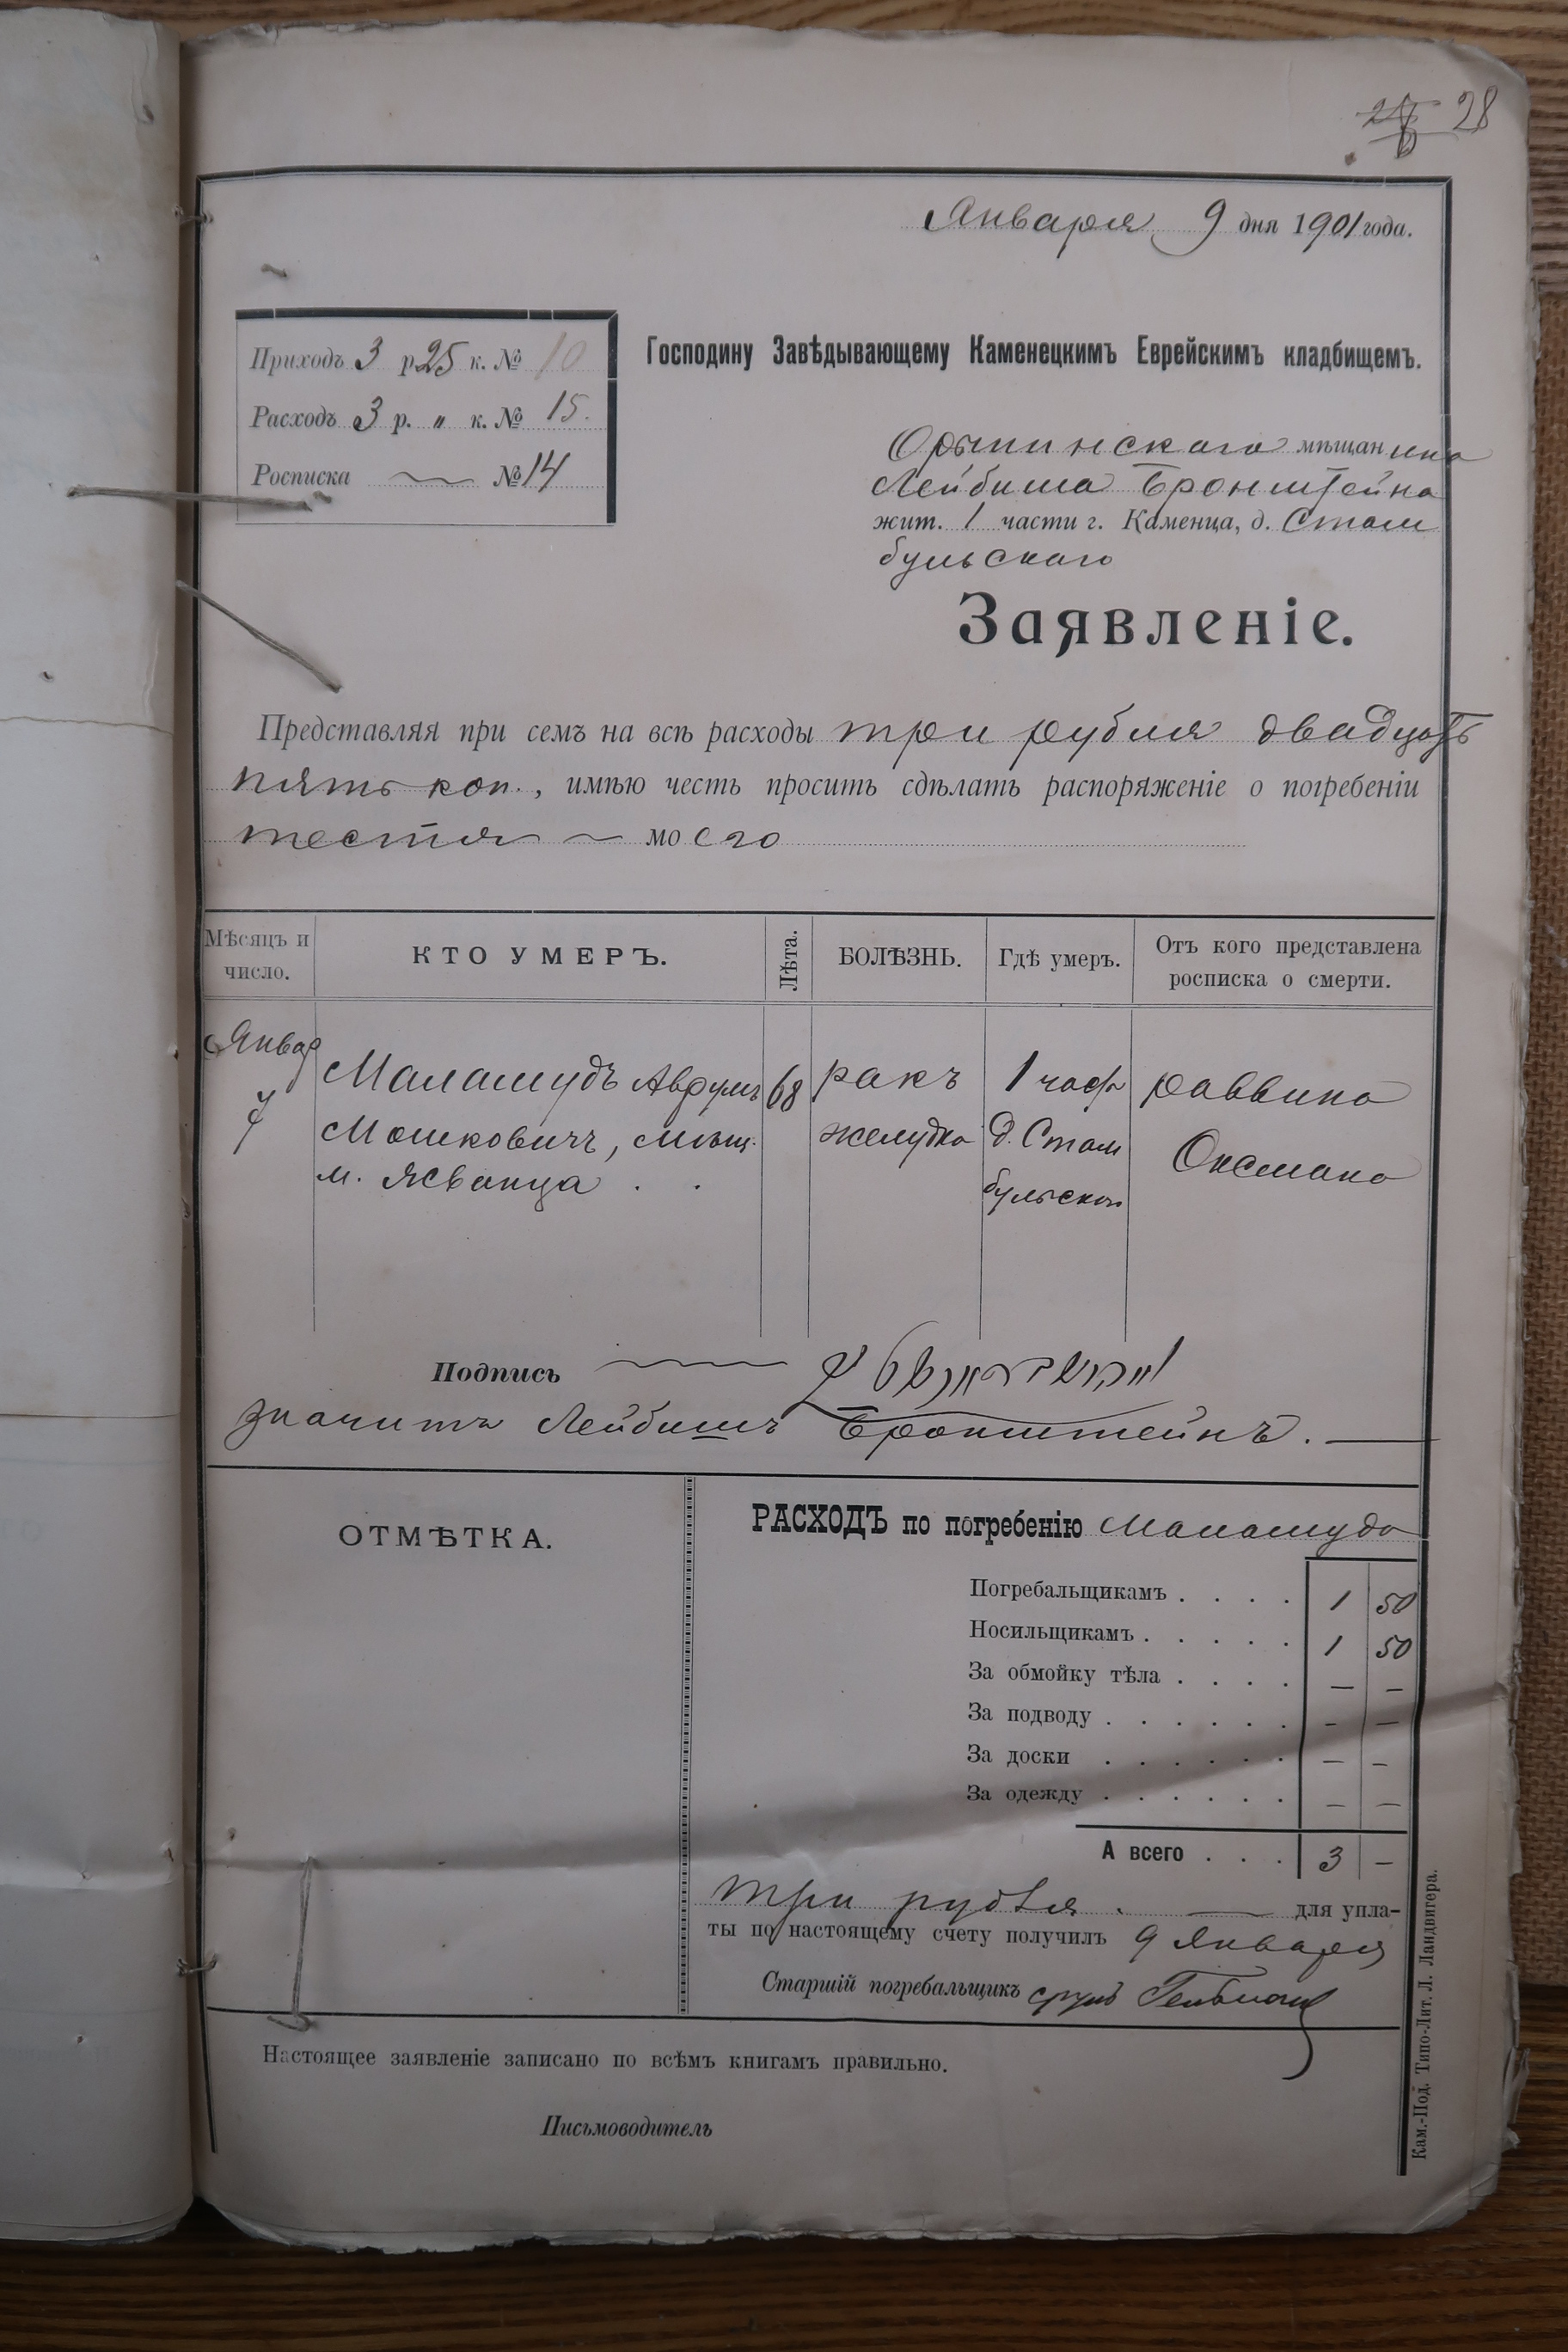 28
Января 9 дня 1901 года.
Приходъ 3 р 25 к. № 10
Расходъ 3 р. „ к. № 15.
Росписка № 14
Господину Завѣдывающему Каменецкимъ Еврейскимъ кладбищемъ.
Орынинскаго мѣщанина
Лейбиша Бронштейна
жит. 1 части г. Каменца, д. Стам
бульскаго
Заявленіе.
Представляя при семъ на всѣ расходы три рубля двадцать
пять коп., имѣю честь просить сдѣлать распоряженіе о погребеніи
тестя — моего
Мѣсяцъ и число.
КТО УМЕРЪ.
Лѣта.
БОЛѢЗНЬ.
Гдѣ умеръ.
Отъ кого представлена росписка о смерти.
Январ 7
Маламудъ Аврумъ
Мошковичъ, мѣщ.
м.
68
ракъ
желудка
1 част
д. Стам
бульскаго
раввина
Оксмана
Подпись
значитъ Лейбишъ Бронштейнъ.
ОТМѢТКА.
РАСХОДЪ по погребенію Маламуда
Погребальщикамъ . . . . 1 50
Носильщикамъ . . . . . 1 50
За обмойку тѣла . . . . — —
За подводу . . . . . . - —
За доски . . . . . . — –
За одежду . . . . . . — —
А всего . . . 3 —
три рубля . — для упла-
ты по настоящему счету получилъ 9 Января
Старшій погребальщикъ Сруль Гельман
Настоящее заявленіе записано по всѣмъ книгамъ правильно.
Письмоводитель
Кам.-Под. Типо-Лит. Л. Ландвигера.